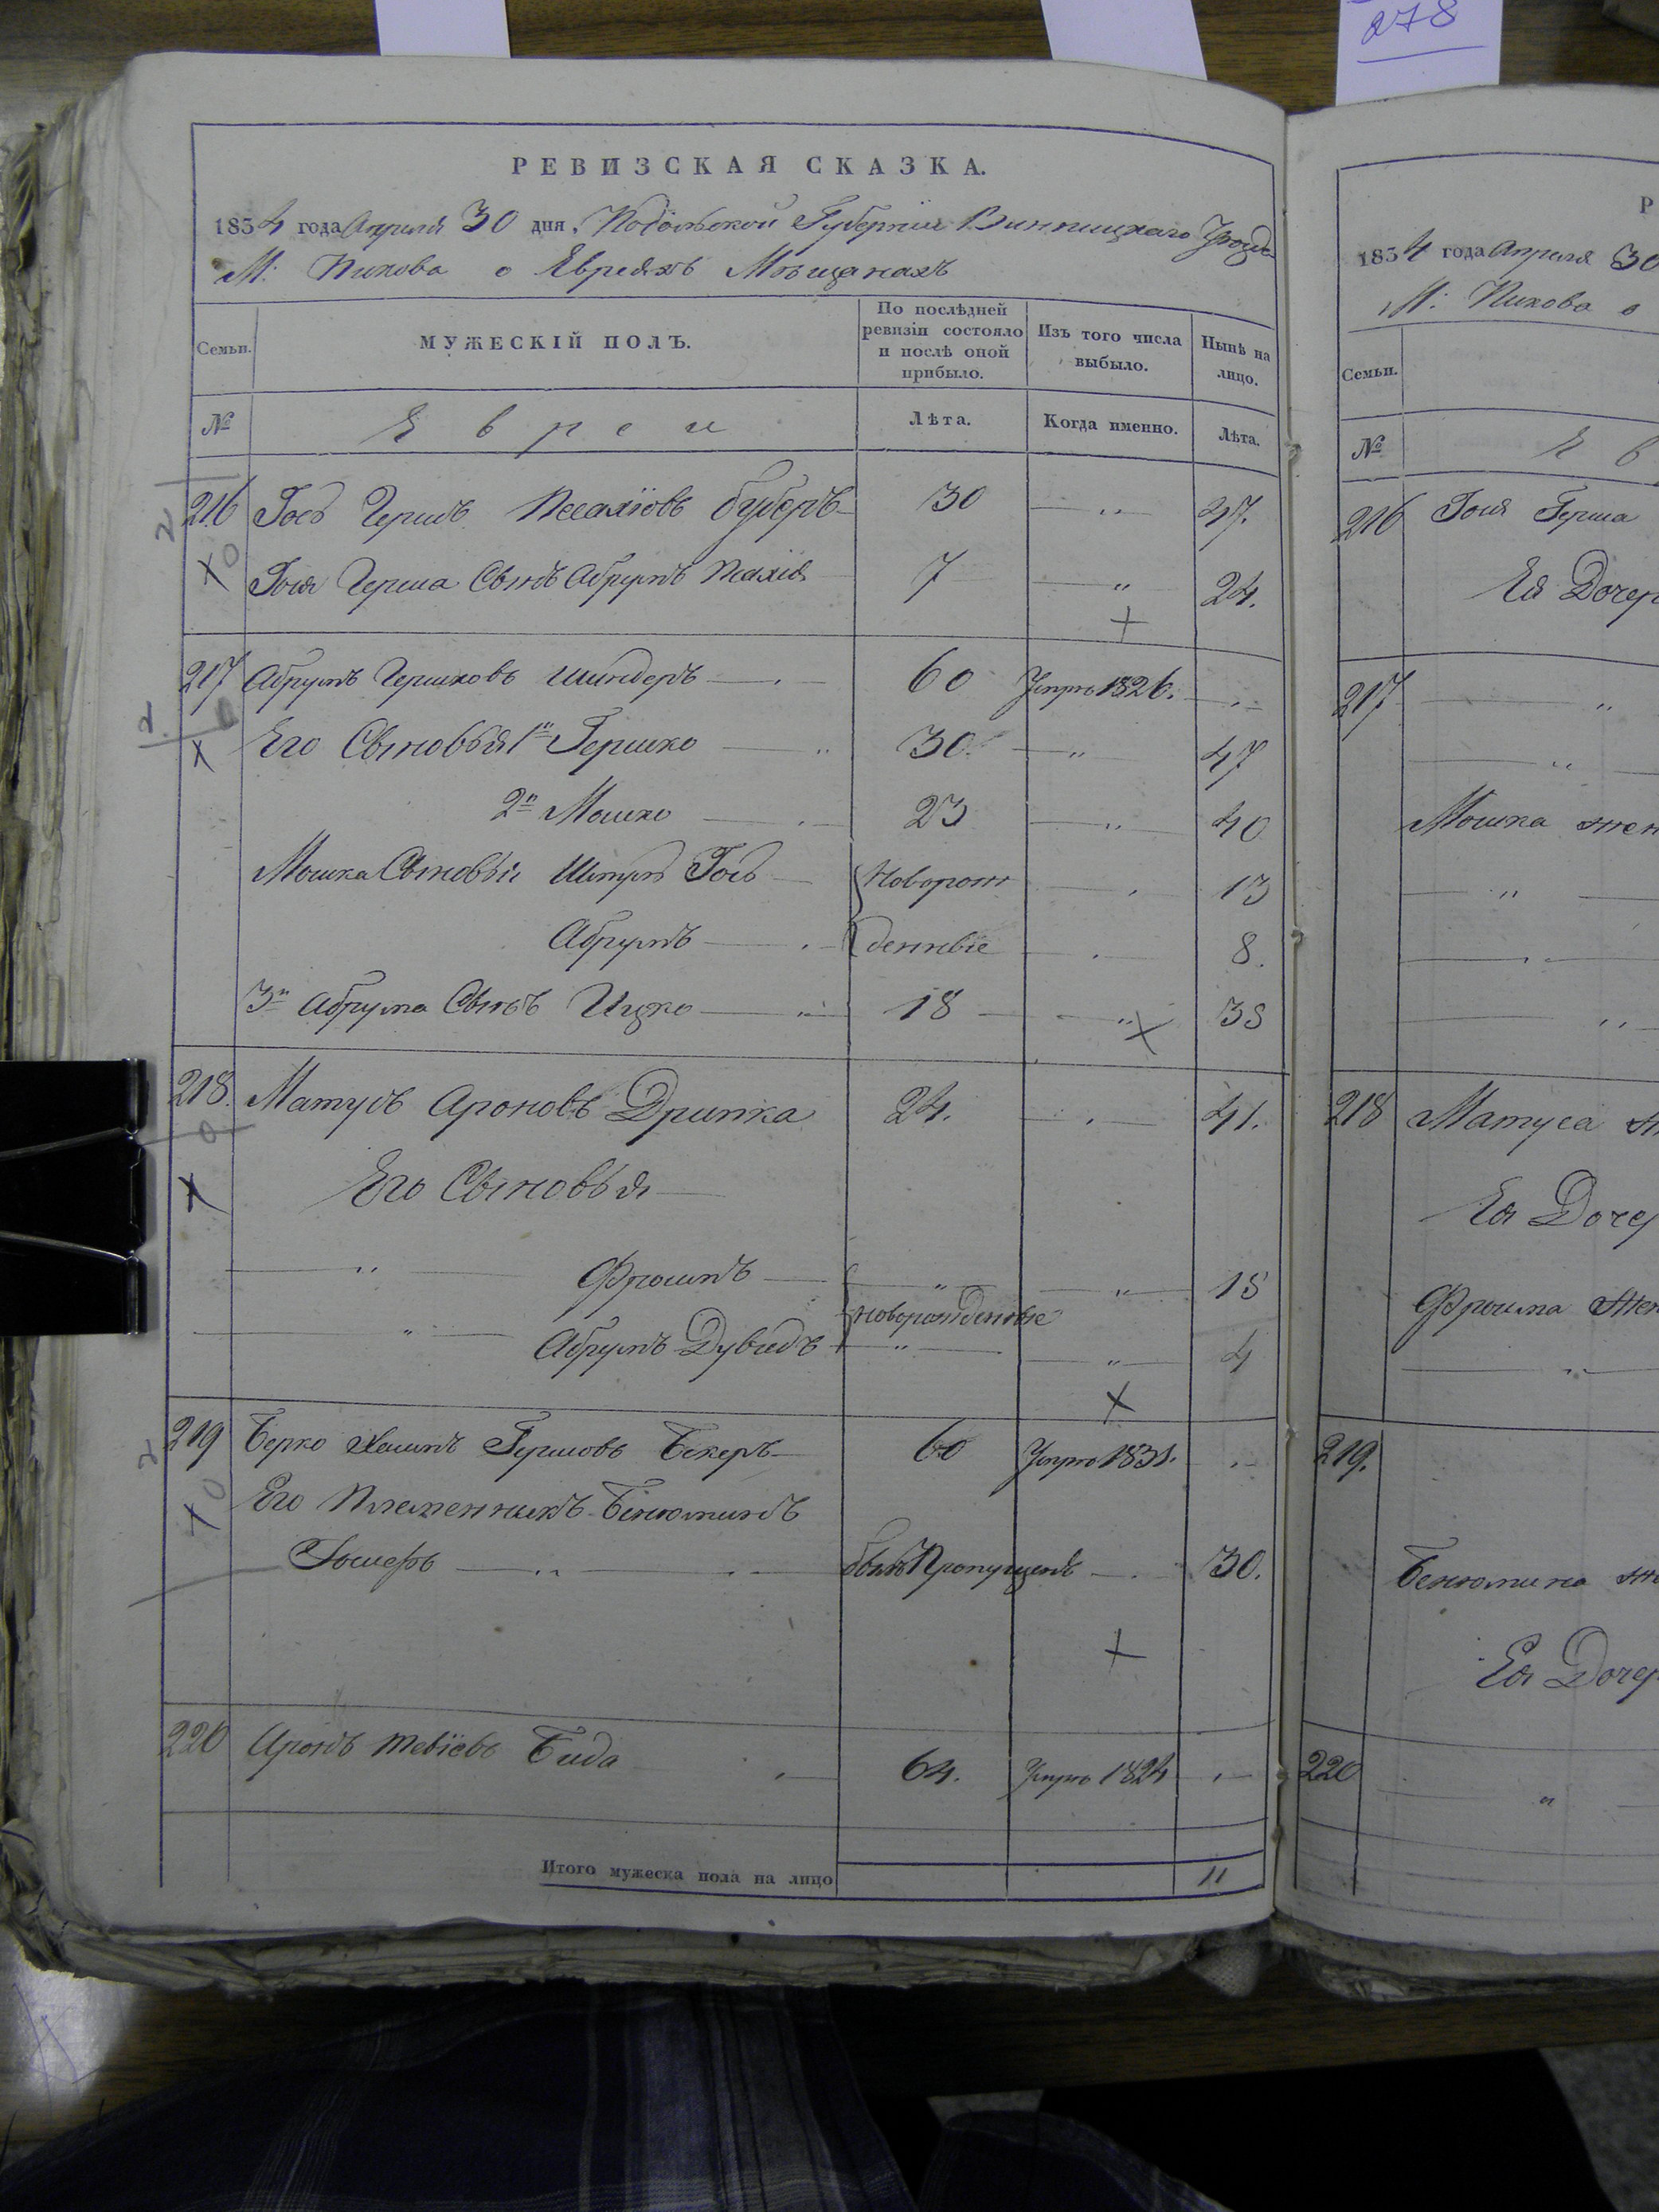 278
РЕВИЗСКАЯ СКАЗКА.
1834 года Апреля 30 дня, Подольской Губернии Винницкаго Уезда
М: Пикова о Евреяхъ Мещанахъ
Семьи.
МУЖЕСКІЙ ПОЛЪ.
По послѣдней ревизіи состояло и послѣ оной прибыло.
Изъ того числа выбыло.
Нынѣ на лицо.
№
Евреи
Лѣта.
Когда именно.
Лѣта.
216 Гершъ Песахіовъ 30 47.
Герша Сынъ Абрумъ 7 24.
217 Абрумъ Гершковъ Шнидеръ 60 1826.
Его Сыновья 1й Гершко 30. 47
2й Мошко 23 40
Мошка Сыновья Новорож 13
Абрумъ денные 8.
3й Абрума Сынъ Ицко 18 35
218. Матусъ Ароновъ Дрипка 24. 41.
Его Сыновья
Фроимъ 15
новорожденные
Абрумъ Дувидъ 4
219 Берко Хаимъ Гершовъ Бекеръ 60 1831.
Его Племенникъ Бенюминъ
Іосифъ былъ Пропущенъ 30.
220 Аронъ Тевіевъ Бида 64. 1824
Итого мужеска пола на лицо 11
Р
1834 года Апреля 30
М: Пикова о
Семьи.
№
Е в
216 Герша
Ея Дочер
217
Мошка жен
218 Матуса ж
Ея Дочер
Фроима Жен
219.
Бенюмина же
Ея Дочер
220